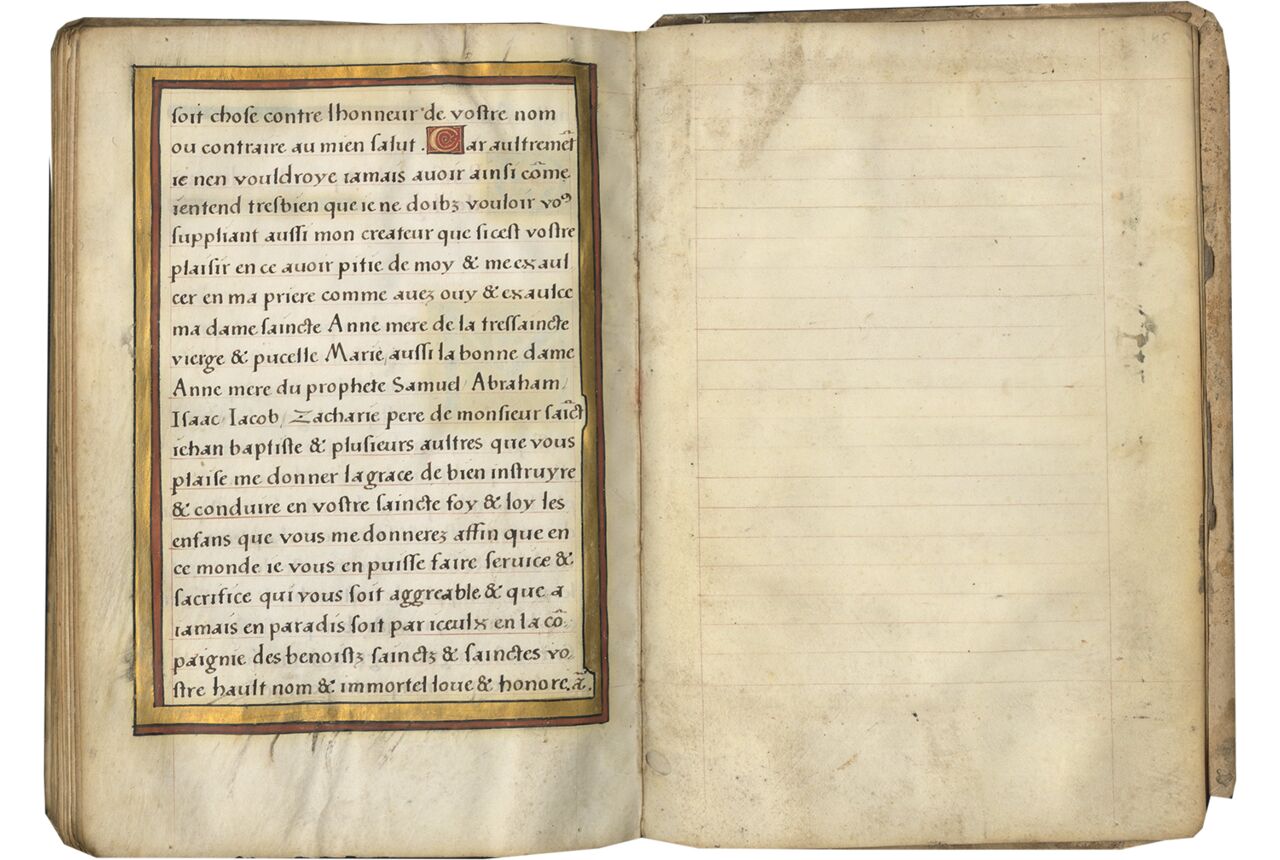 soit chose contre lhonneur de vostre nom
ou contraire au mien salut . Car aultremẽt
ie nen vouldroye iamais auoir ainsi cõme
ientend tresbien que ie ne doibz vouloir voꝰ
suppliant aussi mon createur que sicest vostre
plaisir en ce auoir pitie de moy & me exaul
cer en ma priere comme auez ouy & exaulce
ma dame saincte Anne mere de la tressaincte
vierge & pucelle Marie/ aussi la bonne dame
Anne mere du prophete Samuel/ Abraham/
Isaac/ Iacob/ Zacharie pere de monsieur saĩct
iehan baptiste & plusieurs aultres que vous
plaise me donner la grace de bien instruyre
& conduire en vostre saincte foy & loy les
enfans que vous me donnerez affin que en
ce monde ie vous en puisse faire seruice &
sacrifice qui vous soit aggreable & que a
iamais en paradis soit par iceulx en la cõ-
paignie des benoistz sainctz & sainctes vo-
stre hault nom & immortel loue & honore. ã.
45